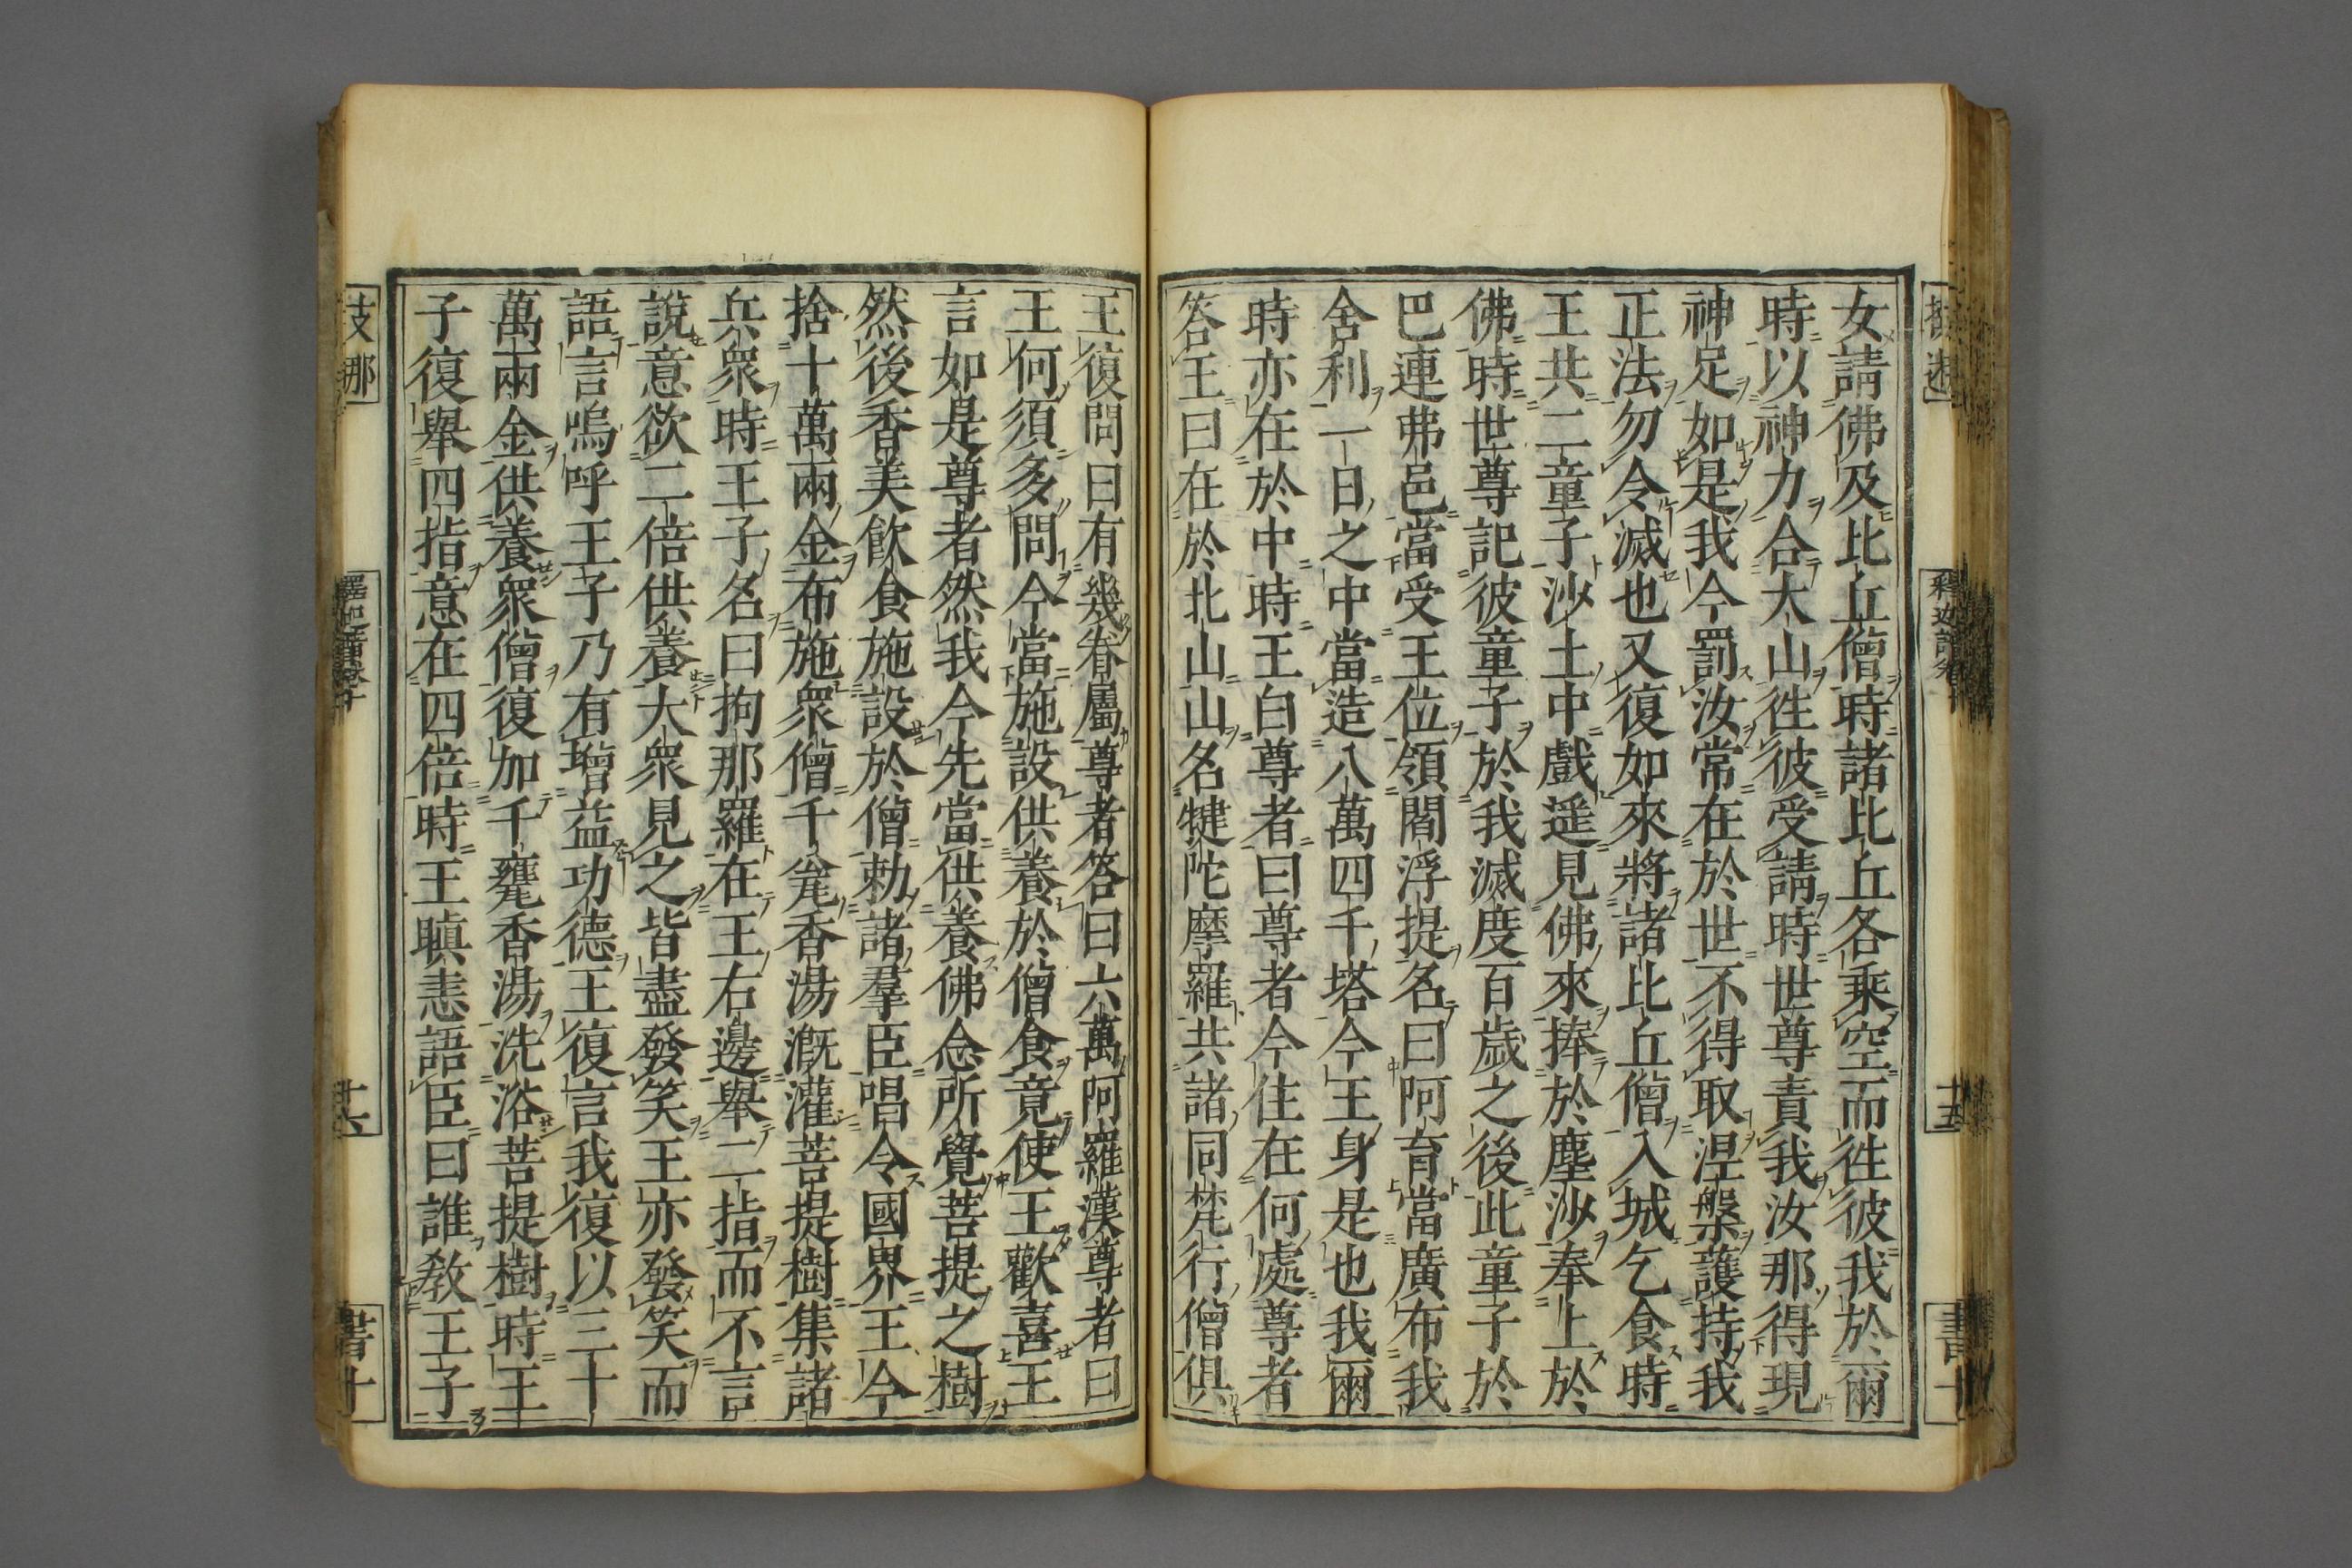 女請佛及比丘僧時諸比丘各乗空而徃彼我於爾
時以神力合大山徃彼受請時世尊責我汝那得現
神足如是我今罰汝常在於世不得取涅槃護持我
正法勿令滅也又復如來將諸比丘僧入城乞食時
王共二童子沙土中戲遥見佛來捧於塵沙奉上於
佛時世尊記彼童子於我滅度百歲之後此童子於
巴連弗邑當受王位領閻浮提名曰阿育當廣布我
舍利一日之中當造八萬四千塔今王身是也我爾
時亦在於中時王白尊者曰尊者今住在何處尊者
答王曰在於北山山名犍陀摩羅共諸同梵行僧俱
王復問曰有幾眷屬尊者答曰六萬阿羅漢尊者曰
王何須多問今當施設供養於僧食竟使王歡喜王
言如是尊者然我今先當供養佛念所覺菩提之樹
然後香美飲食施設於僧勅諸羣臣唱令國界王今
捨十萬兩金布施衆僧千瓮香湯漑灌菩提樹集諸
兵衆時王子名曰拘那羅在王右邊舉二指而不言
說意欲二倍供養大衆見之皆盡發笑王亦發笑而
語言嗚呼王子乃有增益功德王復言我復以三十
萬兩金供養衆僧復加千甕香湯洗浴菩提樹時王
子復舉四指意在四倍時王瞋恚語臣曰誰敎王子
支那
釋迦譜卷十
十六
書十
釋迦譜卷
十五
書十